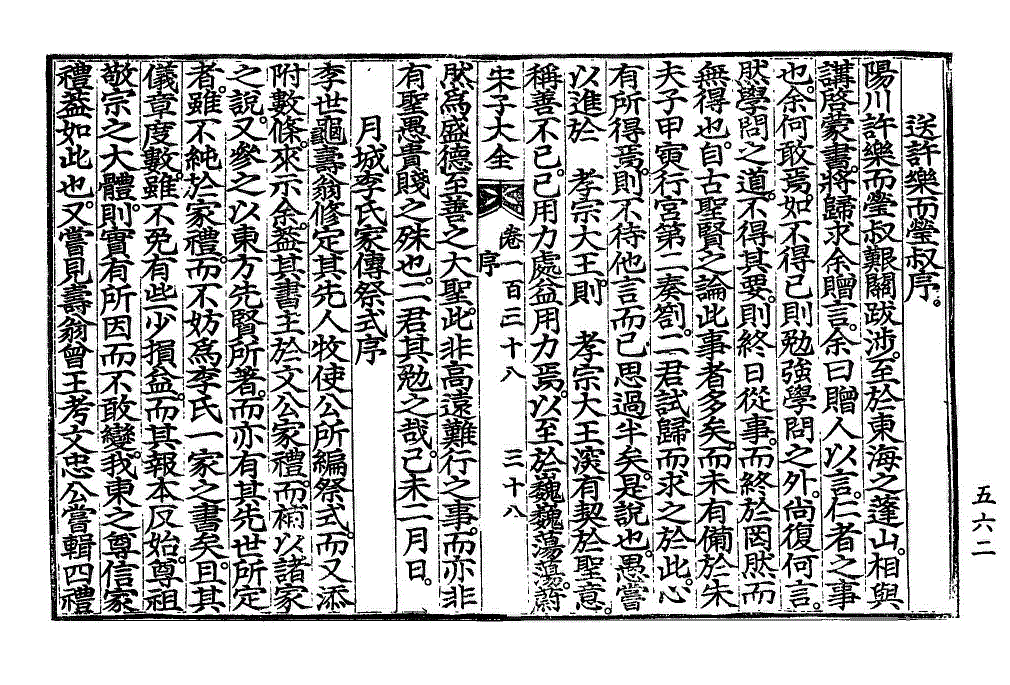 送許樂而瑩叔序。
陽川許樂而瑩叔艱關跋涉。至於東海之蓬山。相與
講啓蒙書。將歸求余贈言。余曰贈人以言。仁者之事
也。余何敢焉。如不得已則勉強學問之外。尙復何言。
然學問之道。不得其要。則終日從事。而終於罔然而
無得也。自古聖賢之論此事者多矣。而未有備於朱
夫子甲寅行宮第二奏箚。二君試歸而求之於此。心
有所得焉。則不待他言而已思過半矣。是說也。愚嘗
以進於　孝宗大王。則　孝宗大王深有契於聖意。
稱善不已。已用力處益用力焉。以至於巍巍蕩蕩。蔚
宋子大全　卷一百三十八　三十八
序
然爲盛德至善之大聖。此非高遠難行之事。而亦非
有聖愚貴賤之殊也。二君其勉之哉。己未二月日。
月城李氏家傳祭式序
李世龜壽翁修定其先人牧使公所編祭式。而又添
附數條。來示余。蓋其書主於文公家禮。而補以諸家
之說。又參之以東方先賢所著。而亦有其先世所定
者。雖不純於家禮。而不妨爲李氏一家之書矣。且其
儀章度數。雖不免有些少損益。而其報本反始。尊祖
敬宗之大體。則實有所因而不敢變。我東之尊信家
禮。蓋如此也。又嘗見壽翁曾王考文忠公嘗輯四禮
五六二